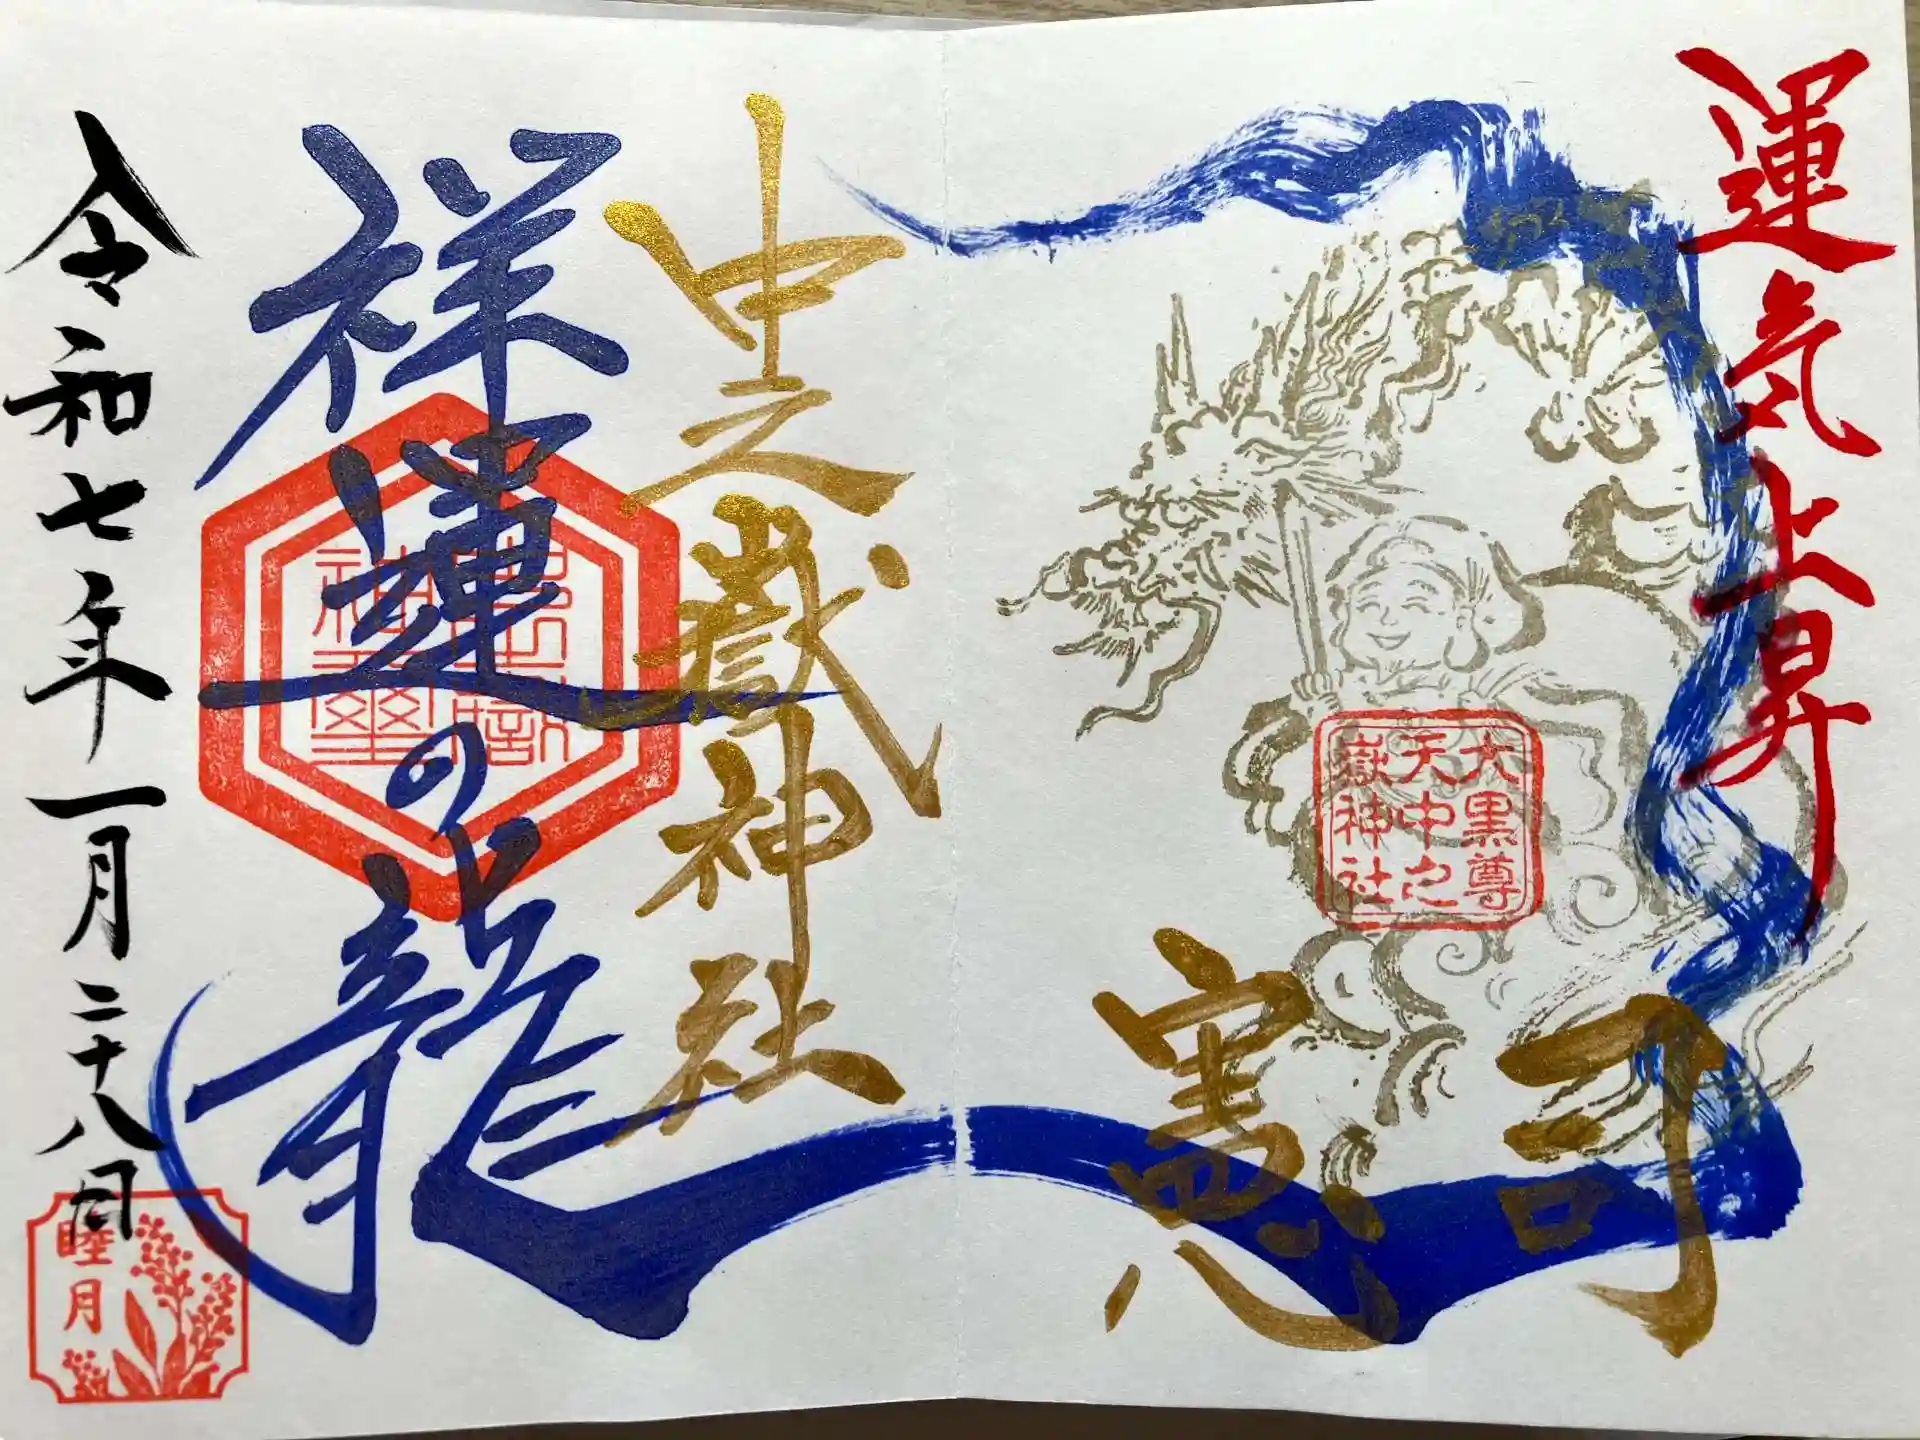 運気上昇
司憲
大黒尊
天中之
嶽神社
中之嶽神社
祥運の龍
令和七年一月二十八日
睦月